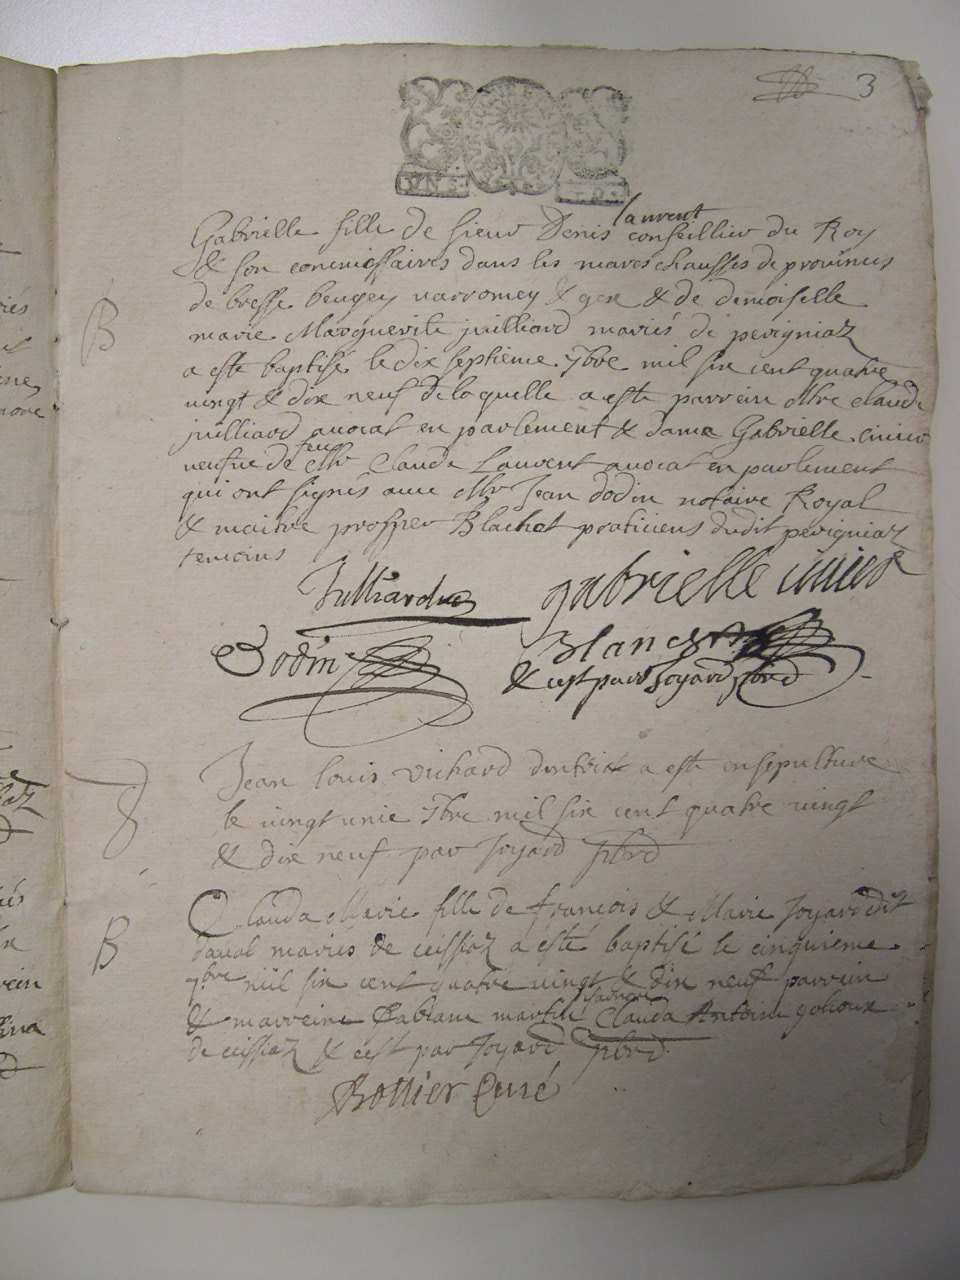 3
VN S
laurent
Gabrielle fille de sieur Denis conseillier du Roy
& son commissaires dans les mareschausses de provinces
de bresse beugey varromey & gex & de demoiselle
B
marie Marguerite juilliard mariés de perigniaz
a este baptisé le dix septieme 7bre mil six cent quatre
vingt & dix neuf de laquelle a este parrein Mre Claude
juilliard avocat en parlement & dame Gabrielle
feu
de Mr Claude Laurent avocat en parlement
qui ont signés avec Mr Jean dodin notaire Royal
& maitre prosper Blachot praticiens dudit perigniaz
temoins
gabrielle
Dodin
& cest par Joyard
Jean louis vichard a este ensepulture
le vingt unie 7bre mil six cent quatre vingt
& dix neuf par Joyard
Clauda Marie fille de francois & Marie Joyard dit
B
mariés de ceissiaz a esté baptisé le cinquieme
9bre mil six cent quatre vingt & dix neuf parrein
& marreine Fabiane martin Clauda Antoine
de ceissiaz & cest par Joyard
Curé